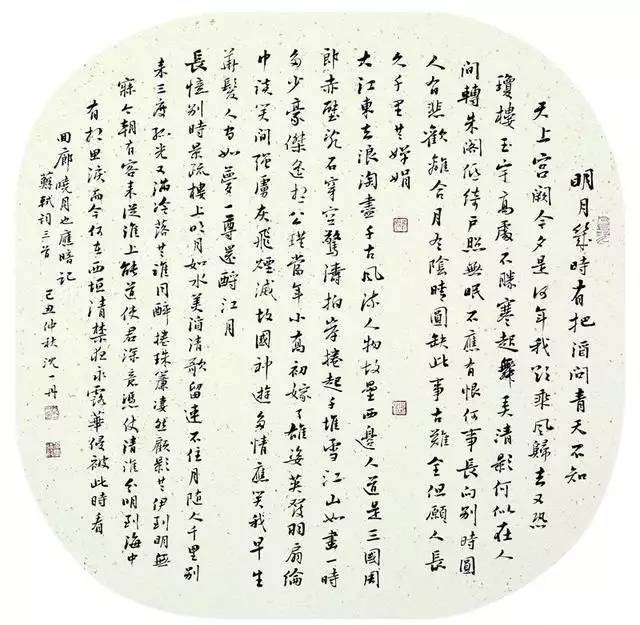 明月幾時有把酒問青天不知
天上宮闕今夕是何年我欲乘風歸去又恐
瓊樓玉宇高處不勝寒起舞弄清影何似在人
間轉朱閣低綺戶照無眠不應有恨何事長向別時圓
人有悲歡離合月有陰晴圓缺此事古難全但願人長
久千里共嬋娟
大江東去浪淘盡千古風流人物故壘西邊人道是三國周
郎赤壁亂石穿空驚濤拍岸捲起千堆雪江山如畫一時
多少豪傑遙想公瑾當年小喬初嫁了雄姿英發羽扇綸
巾談笑間強虜灰飛煙滅故國神遊多情應笑我早生
華髮人間如夢一尊還酹江月
長憶別時景疏樓上明月如水美酒清歌留連不住月隨人千里別
來三度孤光又滿冷落共誰同醉捲珠簾淒然顧影共伊到明無
寐今朝有客來從淮上能道使君深意憑仗清淮分明到海中
有相思淚而今何在西垣清禁夜永露華侵被此時看
回廊曉月也應暗記
蘇軾詞三首 己丑仲秋沈一丹